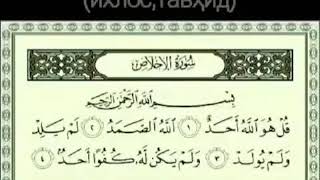 (Ихлос,Тавҳид)
سُورَةُ الْإِخْلَاصِ
بِسْمِ اللَّهِ الرَّحْمَٰنِ الرَّحِيمِ
قُلْ هُوَ اللَّهُ أَحَدٌ ١ اللَّهُ الصَّمَدُ ٢ لَمْ يَلِدْ
وَلَمْ يُولَدْ ٣ وَلَمْ يَكُن لَّهُ كُفُوًا أَحَدٌ ٤